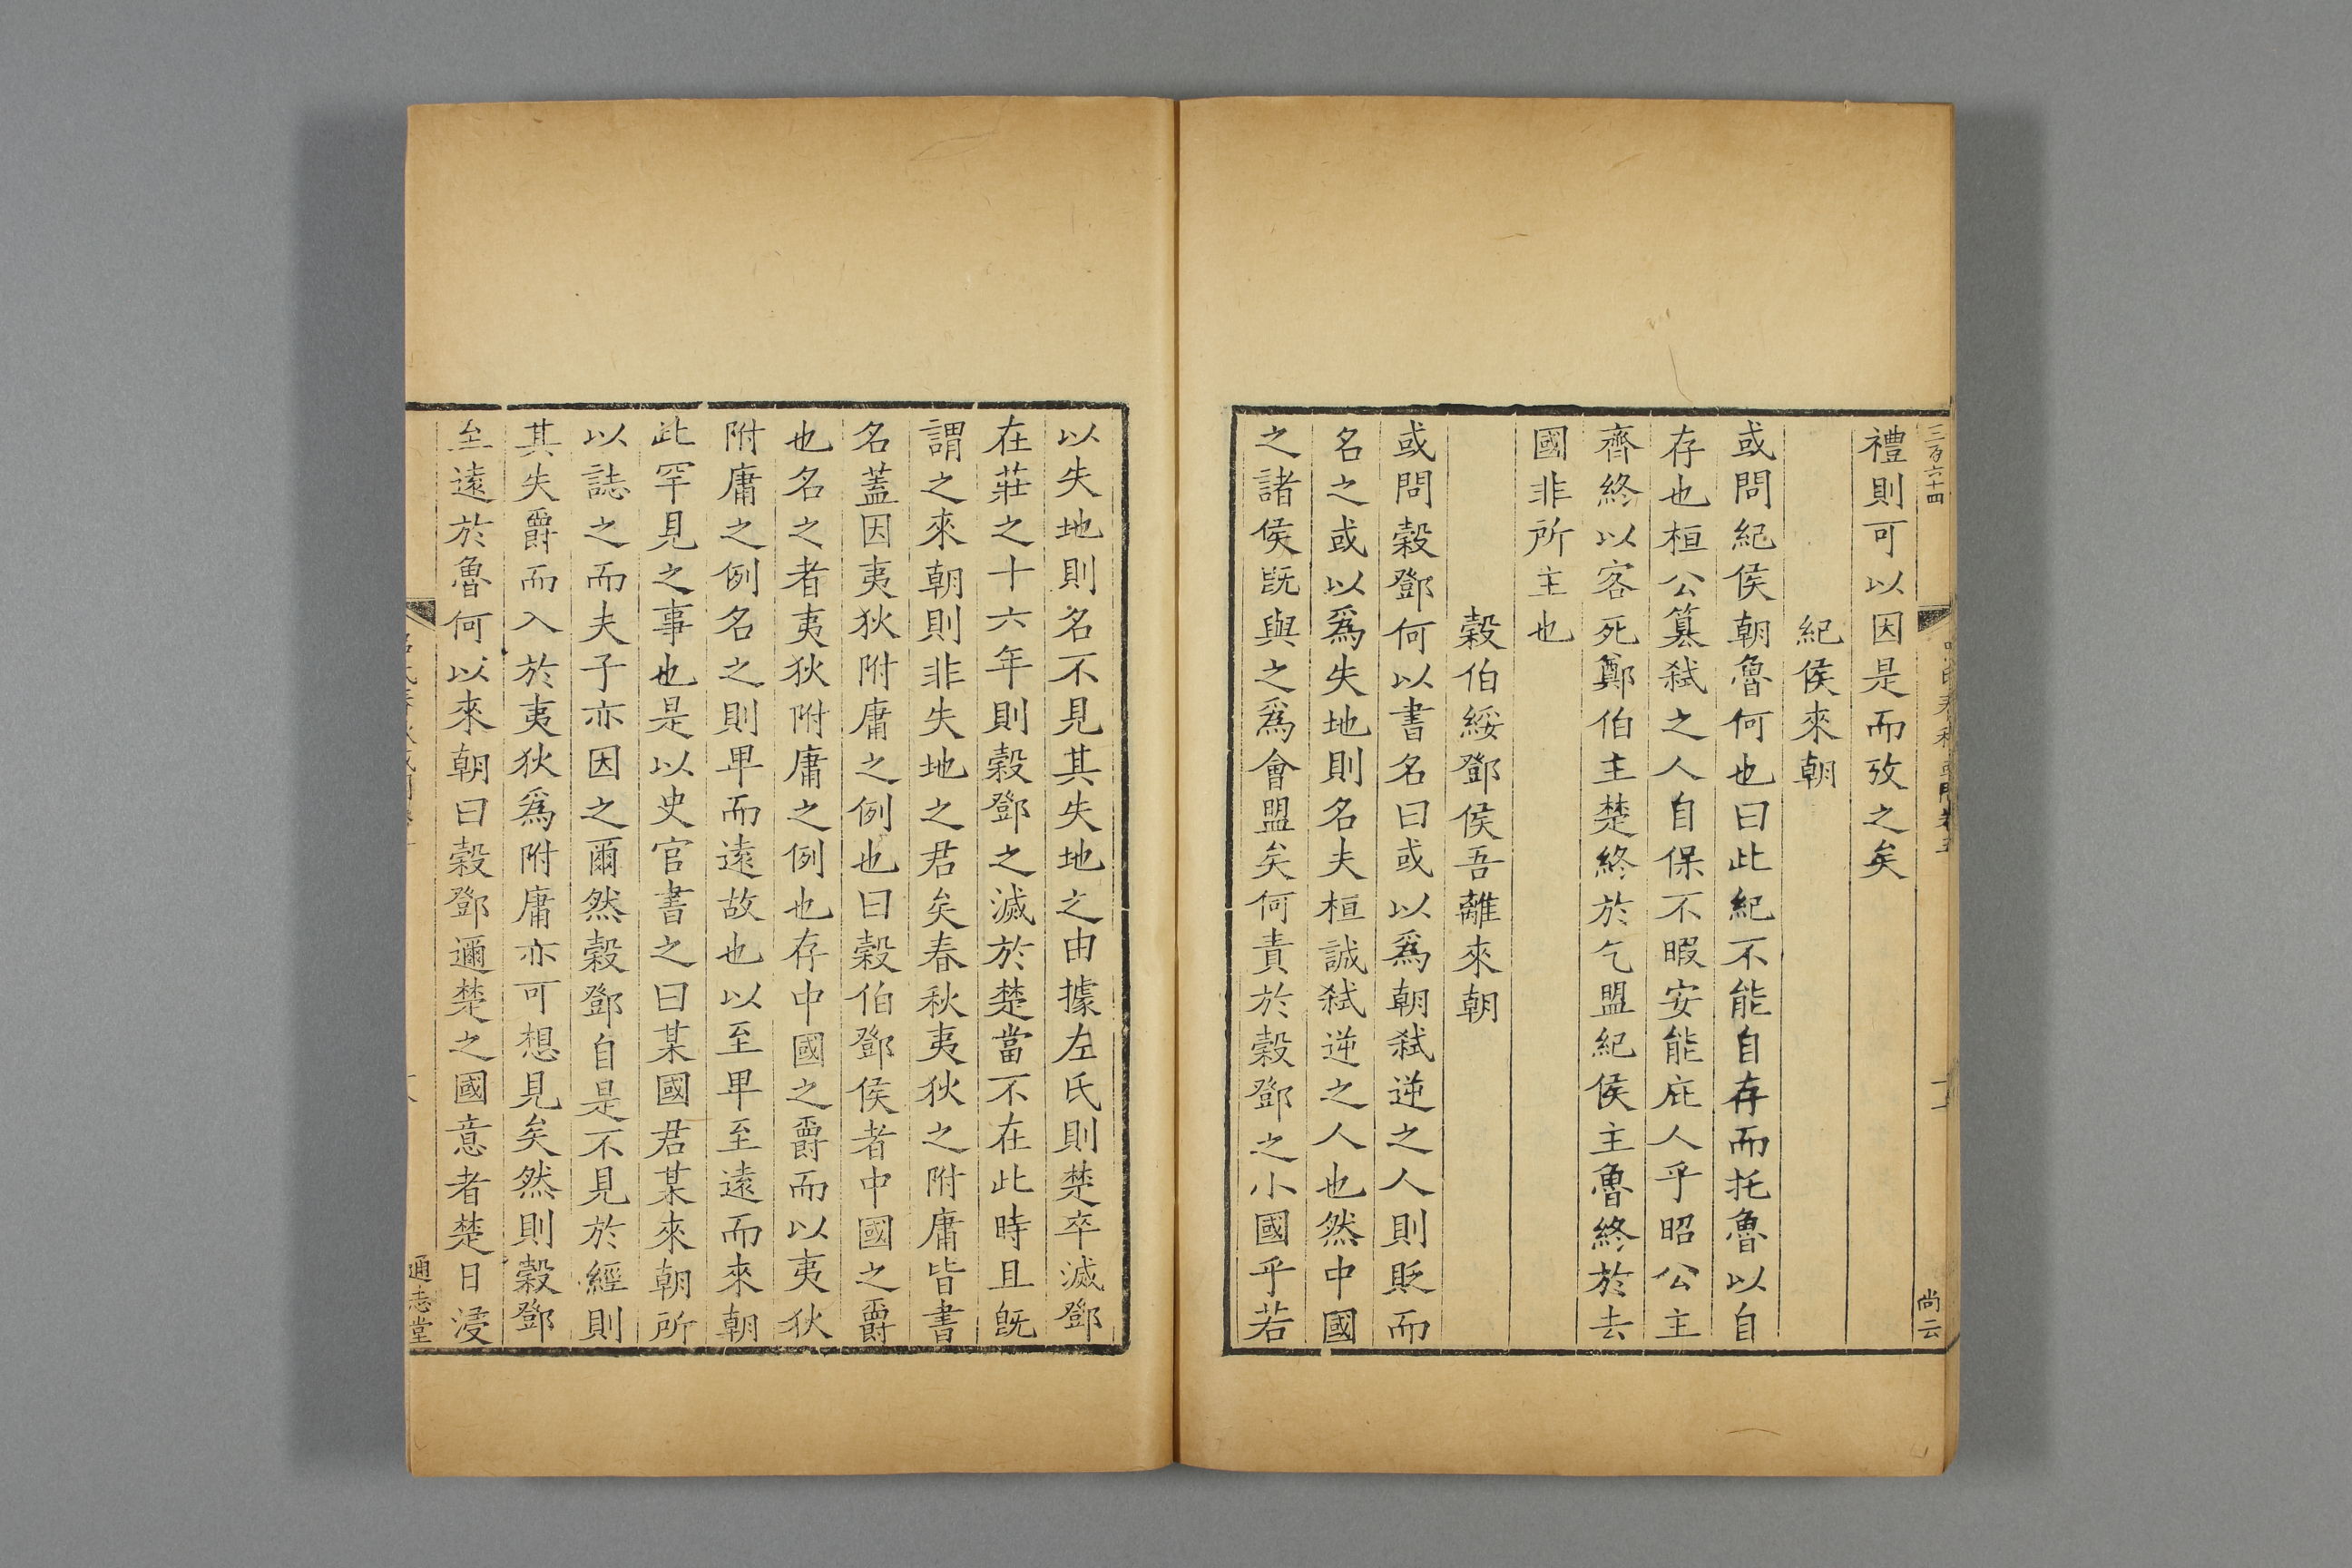 三百六十四
尚云
禮則可以因是而攷之矣
紀侯來朝
或問紀侯朝魯何也曰此紀不能自存而托魯以自
存也桓公篡弒之人自保不暇安能庇人乎昭公主
齊終以客死鄭伯主楚終於乞盟紀侯主魯終於去
國非所主也
穀伯綏鄧侯吾離來朝
或問穀鄧何以書名曰或以爲朝弒逆之人則貶而
名之或以爲失地則名夫桓誠弒逆之人也然中國
之諸侯旣與之爲會盟矣何責於穀鄧之小國乎若
以失地則名不見其失地之由據左氏則楚卒滅鄧
在莊之十六年則穀鄧之滅於楚當不在此時且旣
謂之來朝則非失地之君矣春秋夷狄之附庸皆書
名蓋因夷狄附庸之例也曰穀伯鄧侯者中國之爵
也名之者夷狄附庸之例也存中國之爵而以夷狄
附庸之例名之則卑而遠故也以至卑至遠而來朝
此罕見之事也是以史官書之曰某國君某來朝所
以誌之而夫子亦因之爾然穀鄧自是不見於經則
其失爵而入於夷狄爲附庸亦可想見矣然則穀鄧
至遠於魯何以來朝曰穀鄧邇楚之國意者楚日浸
通志堂